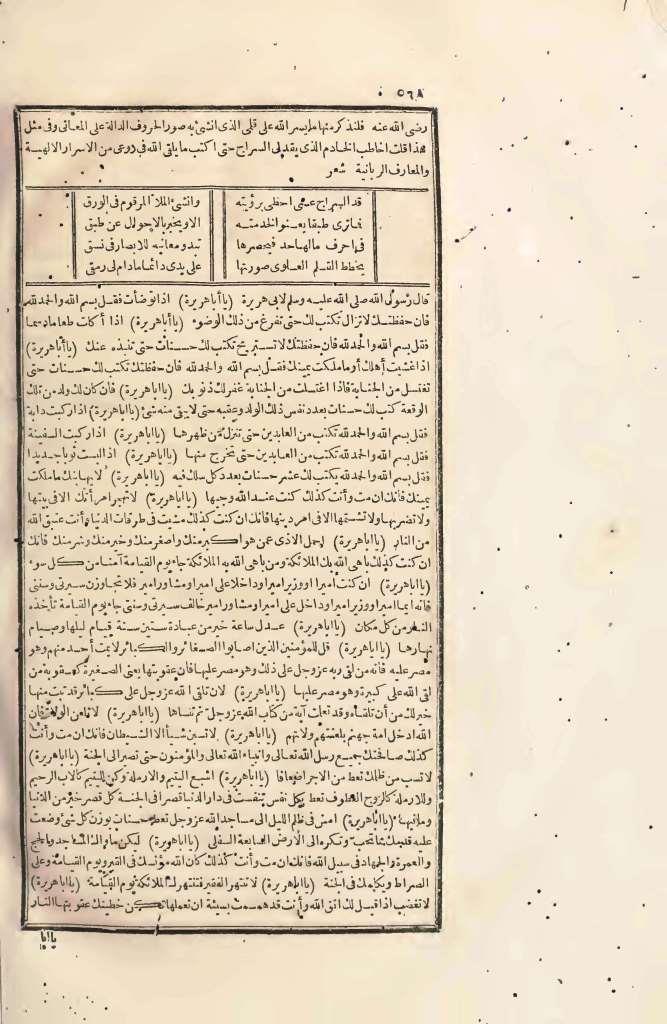 ٥٦٨
رضى الله عنه فلنذكر منها ما يسر الله على قلمى الذى انشئ به صور الحروف الدالة على المعانى وفى مثل
هذا قلت اخاطب الخادم الذى يقدلى السراج حتى اكتب ما يلقى الله فى روعى من الاسرار الالهية
والمعارف الربانية شعر
قد السراج عسى احظى برؤيته وانشئ الملأ المرقوم فى الورق
فما ترى طبقا يعنو لخدمته الا ويخبر بالاحوال عن طبق
فى احرف مالها حد فيحصرها تبدو معانيه للابصار فى نسق
يخطط القلم العلوى صورتها على يدى دائما مادام لى رمق
قال رسول الله صلى الله عليه وسلم لابى هريرة (يا أباهريرة) اذا توضأت فقل بسم الله والحمد لله
فان حفظتك لا تزال تكتب لك حتى تفرغ من ذلك الوضوء (يا أباهريرة) اذا أكلت طعاما دسما
فقل بسم الله والحمد لله فان حفظتك لا تستريح تكتب لك حسنات حتى تنبذه عنك (يا أباهريرة)
اذا غشيت أهلك أو ما ملكت يمينك فقل بسم الله والحمد لله فان حفظتك تكتب لك حسنات حتى
تغتسل من الجنابة فاذا اغتسلت من الجنابة غفر لك ذنوبك (يا اباهريرة) فان كان لك ولد من تلك
الوقعة كتب لك حسنات بعدد نفس ذلك الولد وعقبه حتى لا يبقى منه شئ (يا اباهريرة) اذا ركبت دابة
فقل بسم الله والحمد لله تكتب من العابدين حتى تنزل من ظهرها (يا اباهريرة) اذا ركبت السفينة
فقل بسم الله والحمد لله تكتب من العابدين حتى تخرج منها (يا اباهريرة) اذا لبست ثوبا جديدا
فقل بسم الله والحمد لله يكتب لك عشر حسنات بعدد كل سلك فيه (يا اباهريرة) لا يهابنك ما ملكت
يمينك فانك ان مت وأنت كذلك كنت عند الله وجيها (يا اباهريرة) لا تهجر امرأتك الا فى بيتها
ولا تضربها ولا تشتمها الا فى امر دينها فانك ان كنت كذلك مشيت فى طرقات الدنيا وأنت عتيق الله
من النار (يا اباهريرة) احمل الاذى عمن هو اكبر منك واصغر منك وخير منك وشر منك فانك
ان كنت كذلك باهى الله بك الملائكة ومن باهى الله به الملائكة جاء يوم القيامة آمنا من كل سوء
(يا اباهريرة) ان كنت اميرا او وزير امير او داخلا على امير او مشاور امير فلا تجاوزن سيرتى وسنتى
فانه ايما امير او وزير امير او داخل على امير او مشاور امير خالف سيرتى وسنتى جاء يوم القيامة تأخذه
النار من كل مكان (يا اباهريرة) عدل ساعة خير من عبادة ستين سنة قيام ليلها وصيام
نهارها (يا اباهريرة) قل للمؤمنين الذين اصابوا الصغائر والكبائر لا يمت أحد منهم وهو
مصر عليه فانه من لقى ربه عز وجل على ذلك وهو مصر عليها فان عقوبتها يعنى الصغيرة كعقوبة من
لقى الله على كبيرة وهو مصر عليها (يا اباهريرة) لان تلقى الله عز وجل على كبائر قد تبت منها
خير لك من أن تلقاه وقد تعلمت آية من كتاب الله عز وجل ثم تنساها (يا اباهريرة) لا تلعن الولاة فان
الله ادخل امة جهنم بلعنتهم ولاتهم (يا اباهريرة) لا تسبن شيأ الا الشيطان فانك ان مت وأنت
كذلك صافحتك جميع رسل الله تعالى وانبياء الله تعالى والمؤمنون حتى تصير الى الجنة (يا اباهريرة)
لا تسب من ظلمك تعط من الاجر اضعافا (يا اباهريرة) اشبع اليتيم والارملة وكن لليتيم كالاب الرحيم
وللارملة كالزوج العطوف تعط بكل نفس تنفست فى دار الدنيا قصرا فى الجنة كل قصر خير من الدنيا
وما فيها (يا اباهريرة) امش فى ظلم الليل الى مساجد الله عز وجل تعط حسنات بوزن كل شئ وضعت
عليه قدميك مما تحب وتكره الى الارض السابعة السفلى (يا اباهريرة) ليكن مأواك المساجد والحج
والعمرة والجهاد فى سبيل الله فانك ان مت وأنت كذلك كان الله مؤنسك فى القبر ويوم القيامة وعلى
الصراط ويكلمك فى الجنة (يا اباهريرة) لا تنتهر الفقير فتنتهرك الملائكة يوم القيامة (يا اباهريرة)
لا تغضب اذا قيل لك اتق الله وأنت قد هممت بسيئة ان تعملها تكن خطيئتك عقوبتها النار
يا ابا